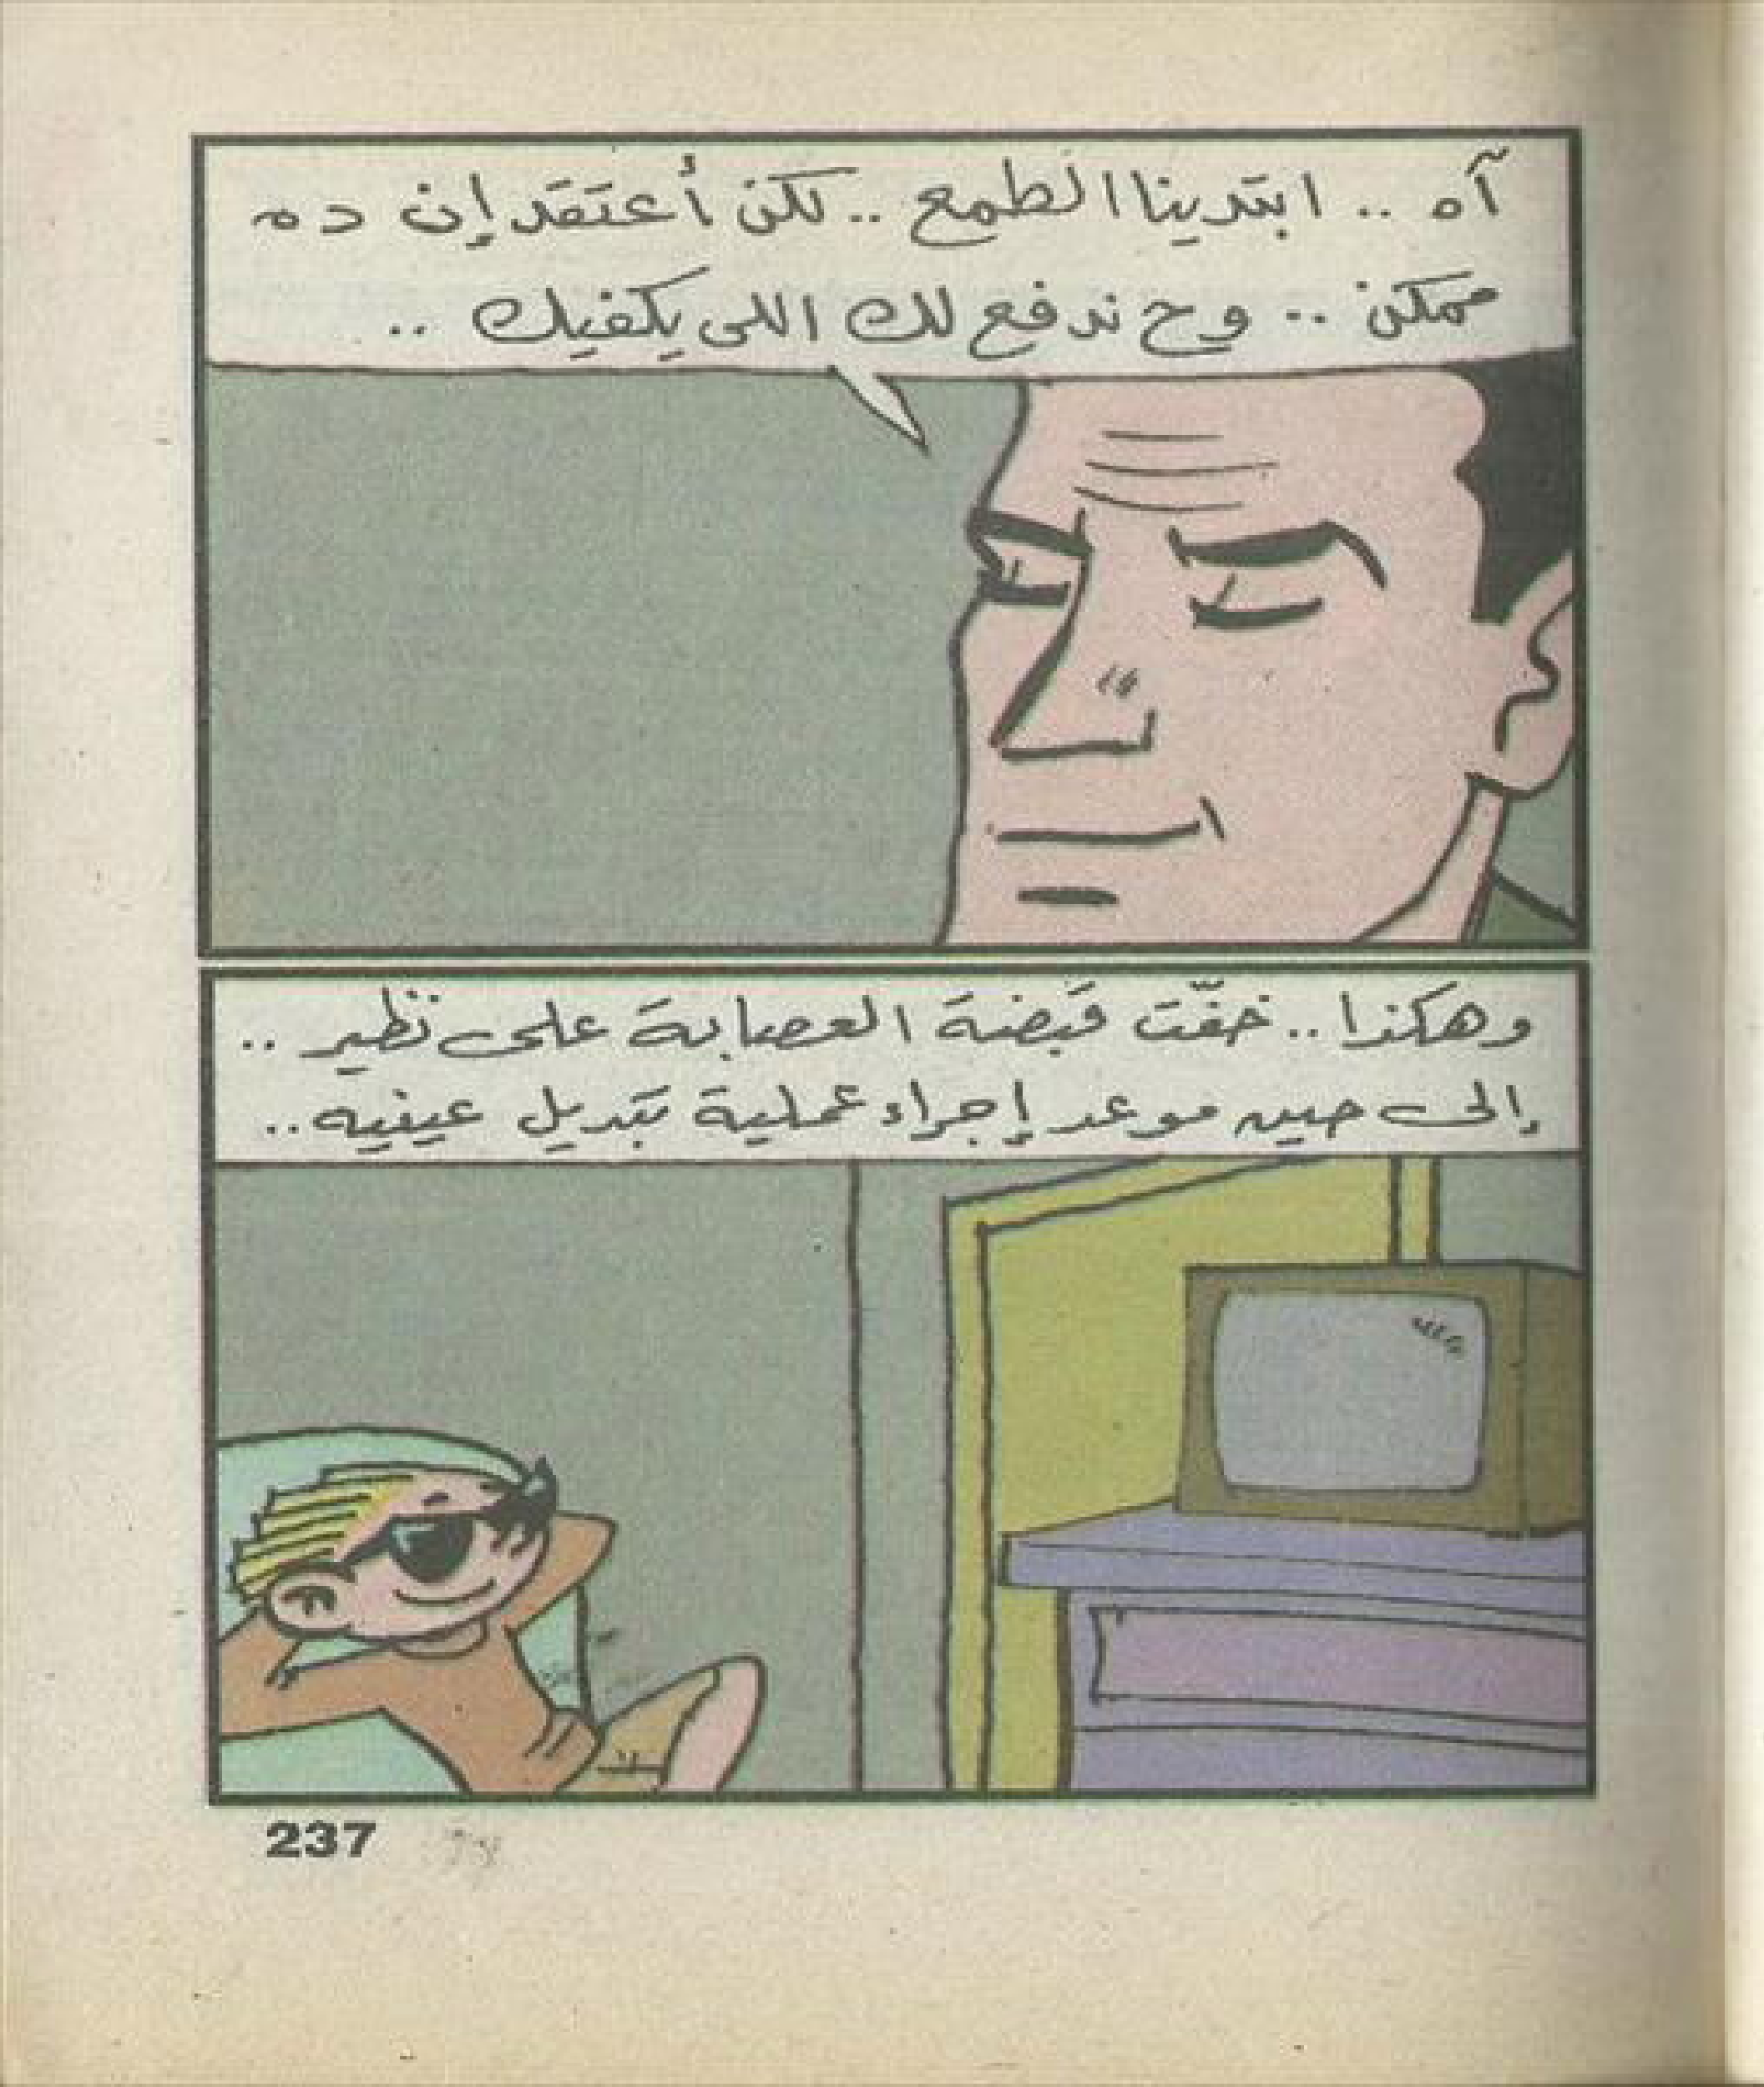 آه .. ابتدينا الطمع .. لكن أعتقد إن ده
ممكن .. وح ندفع لك اللى يكفيك ..
وهكذا .. خفّت قبضة العصابة على نظير ..
إلى حين موعد إجراء عملية تبديل عينيه ..
237